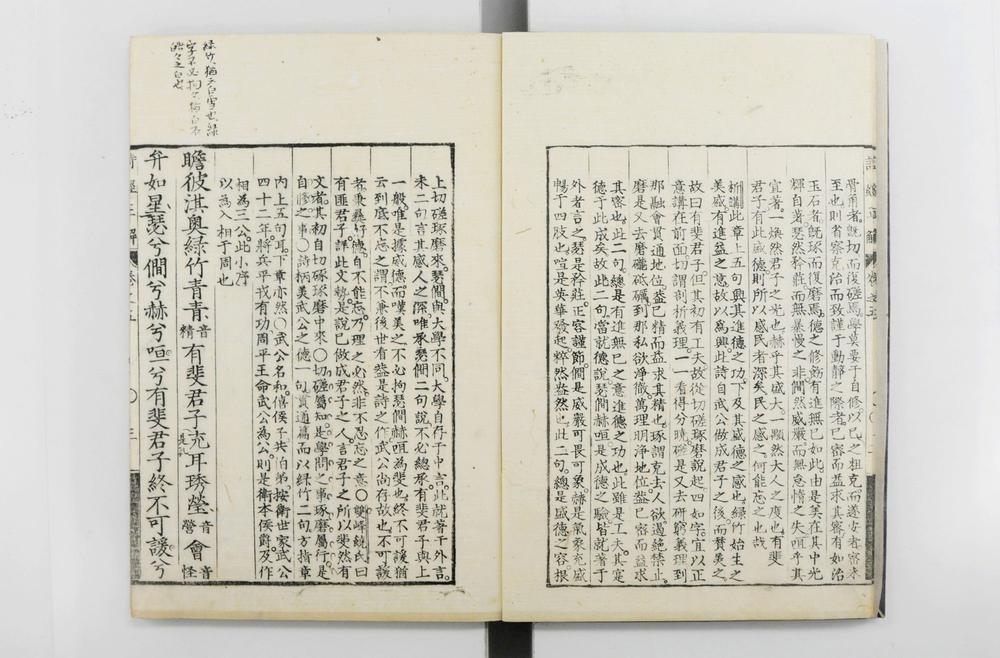 骨角者旣切而復磋焉學莫要于自修以已之粗克而遂安者審未
至也則省察克治而致謹于動靜之際者已審而益求其密有如治
玉石者旣琢而復磨焉德之修飭有進無已如此由是美在其中光
輝自著瑟然矜莊而無暴慢之非僩然威嚴而無怠惰之失咺乎其
宣著一煥然君子之光也赫乎其盛大一顒然大人之度也有斐
君子有此盛德則所以感民者深矣民之感之何能忘之也哉
析講此章上五句興其進德之功下及其盛德之感也綠竹始生之
美盛有進益之意故以爲興此詩自武公做成君子之後而贊美之
故曰有斐君子但其初有工夫故從切磋琢磨說起四如字宜以正
意講在前面切謂剖析義理一一看得分曉磋是又去研窮義理到
那融會貫通地位益已精而益求其精也琢謂克去人欲遏絶禁止
磨是又去磨礲砥礪到那私欲淨徹萬理明淨地位益已密而益求
其密也此二句總是有進無已之意進德之功也此雖是工夫其寔
德于此成矣故此二句當就德說瑟僩赫咺是成德之驗皆就著于
外者言之瑟是矜莊正容謹節僩是威嚴可畏可象赫是氣象充盛
暢于四肢也喧是英華發起睟然盎然也此二句總是盛德之容根
上切磋琢磨來瑟僩與大學不同大學自存于中言此就著于外言
末二句言其感人之深唯承瑟僩二句說不必總承有斐君子與上
一般唯是據盛德而嘆美之不必拘瑟僩赫咺為斐也終不可諼猶
云到底不忘之謂不兼後世有蓋是詩之作武公尚存故也不可諼
者秉彝好德自不能忘乃理之必然非不忍忘之意○雙峰饒氏曰
有匪君子謂此文勢是說已做成君子之人言君子之所以斐然有
文者其初自切磋琢磨中來○切磋屬知是學問之事琢磨屬行是
自修之事○詩柄美武公之德一句貫通篇而以綠竹二句方指章
內上五句耳下章亦然○武公名和僖侯子共伯弟按衛世家武公
四十二年將兵平戎有功周平王命武公為公則是衛本侯爵及作
相為三公此小序
以為入相于周也
瞻彼淇奧綠竹青青音精有斐君子充耳琇瑩音營會音怪
弁如星瑟兮僩兮赫兮咺兮有斐君子終不可諼兮